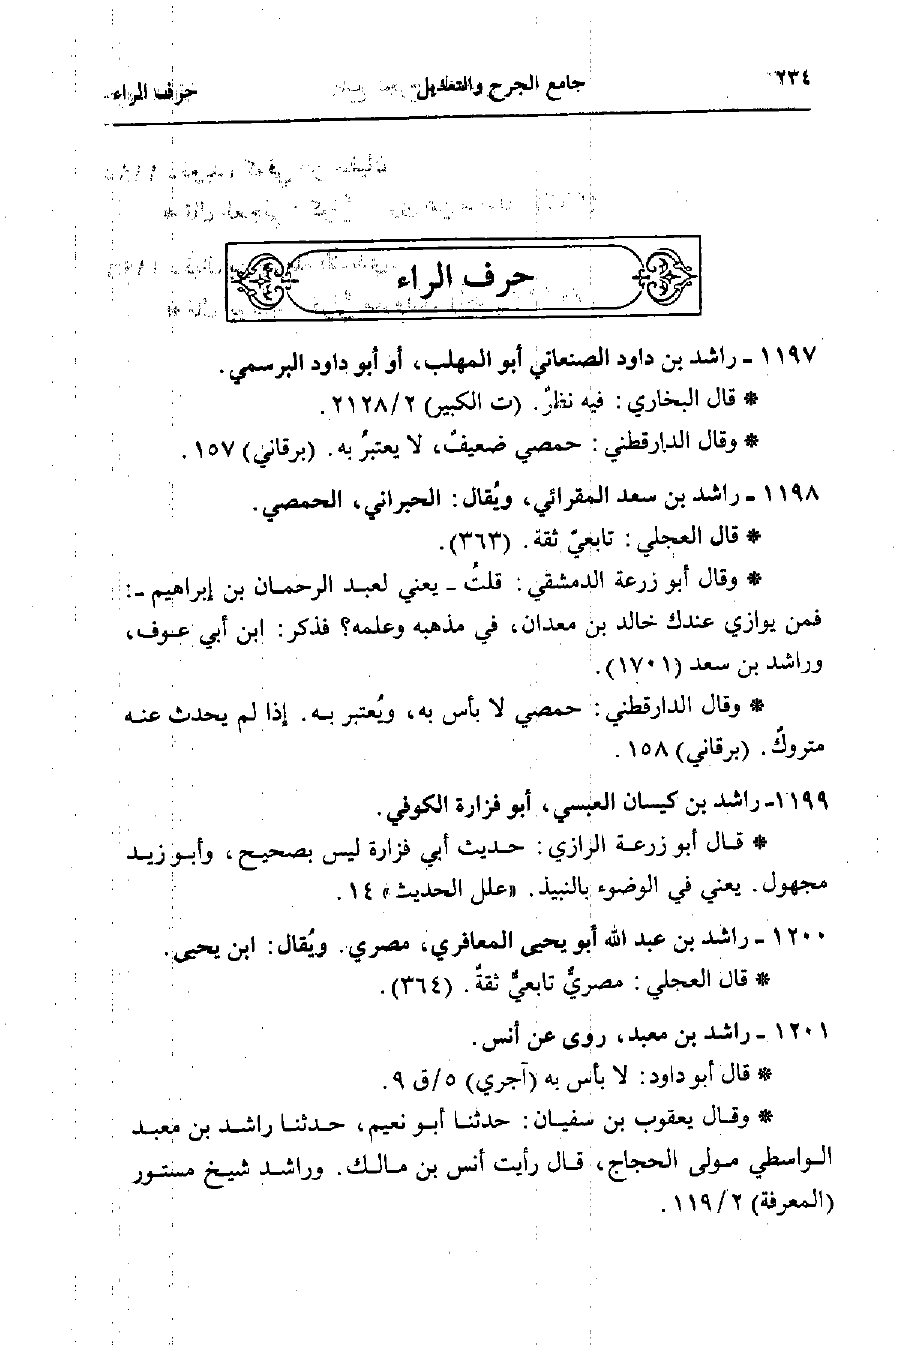 ٢٣٤ جامع الجرح والتعديل حرف الراء
حرف الراء
١١٩٧ ـ راشد بن داود الصنعاني أبو المهلب، أو أبو داود البرسمي.
* قال البخاري: فيه نظرٌ. (ت الكبير) ٢/ ٢١٢٨.
* وقال الدارقطني: حمصي ضعيفٌ، لا يعتبرُ به. (برقاني) ١٥٧.
١١٩٨ ـ راشد بن سعد المقرائي، ويُقال: الحبراني، الحمصي.
* قال العجلي: تابعيّ ثقة. (٣٦٣).
* وقال أبو زرعة الدمشقي: قلتُ ـ يعني لعبد الرحمان بن إبراهيم ـ:
فمن يوازي عندك خالد بن معدان، في مذهبه وعلمه؟ فذكر: ابن أبي عوف،
وراشد بن سعد (١٧٠١).
* وقال الدارقطني: حمصي لا بأس به، ويُعتبر به. إذا لم يحدث عنه
متروكٌ. (برقاني) ١٥٨.
١١٩٩ـ راشد بن كيسان العبسي، أبو فزارة الكوفي.
* قال أبو زرعة الرازي: حديث أبي فزارة ليس بصحيح، وأبو زيد
مجهول. يعني في الوضوء بالنبيذ. «علل الحديث» ١٤.
١٢٠٠ ـ راشد بن عبد الله أبو يحيى المعافري، مصري. ويُقال: ابن يحيى.
* قال العجلي: مصريٌّ تابعيٌّ ثقةٌ. (٣٦٤).
١٢٠١ ـ راشد بن معبد، روى عن أنس.
* قال أبو داود: لا بأس به (آجري) ٥/ق ٩.
* وقال يعقوب بن سفيان: حدثنا أبو نعيم، حدثنا راشد بن معبد
الواسطي مولى الحجاج، قال رأيت أنس بن مالك. وراشد شيخ مستور
(المعرفة) ٢/ ١١٩.